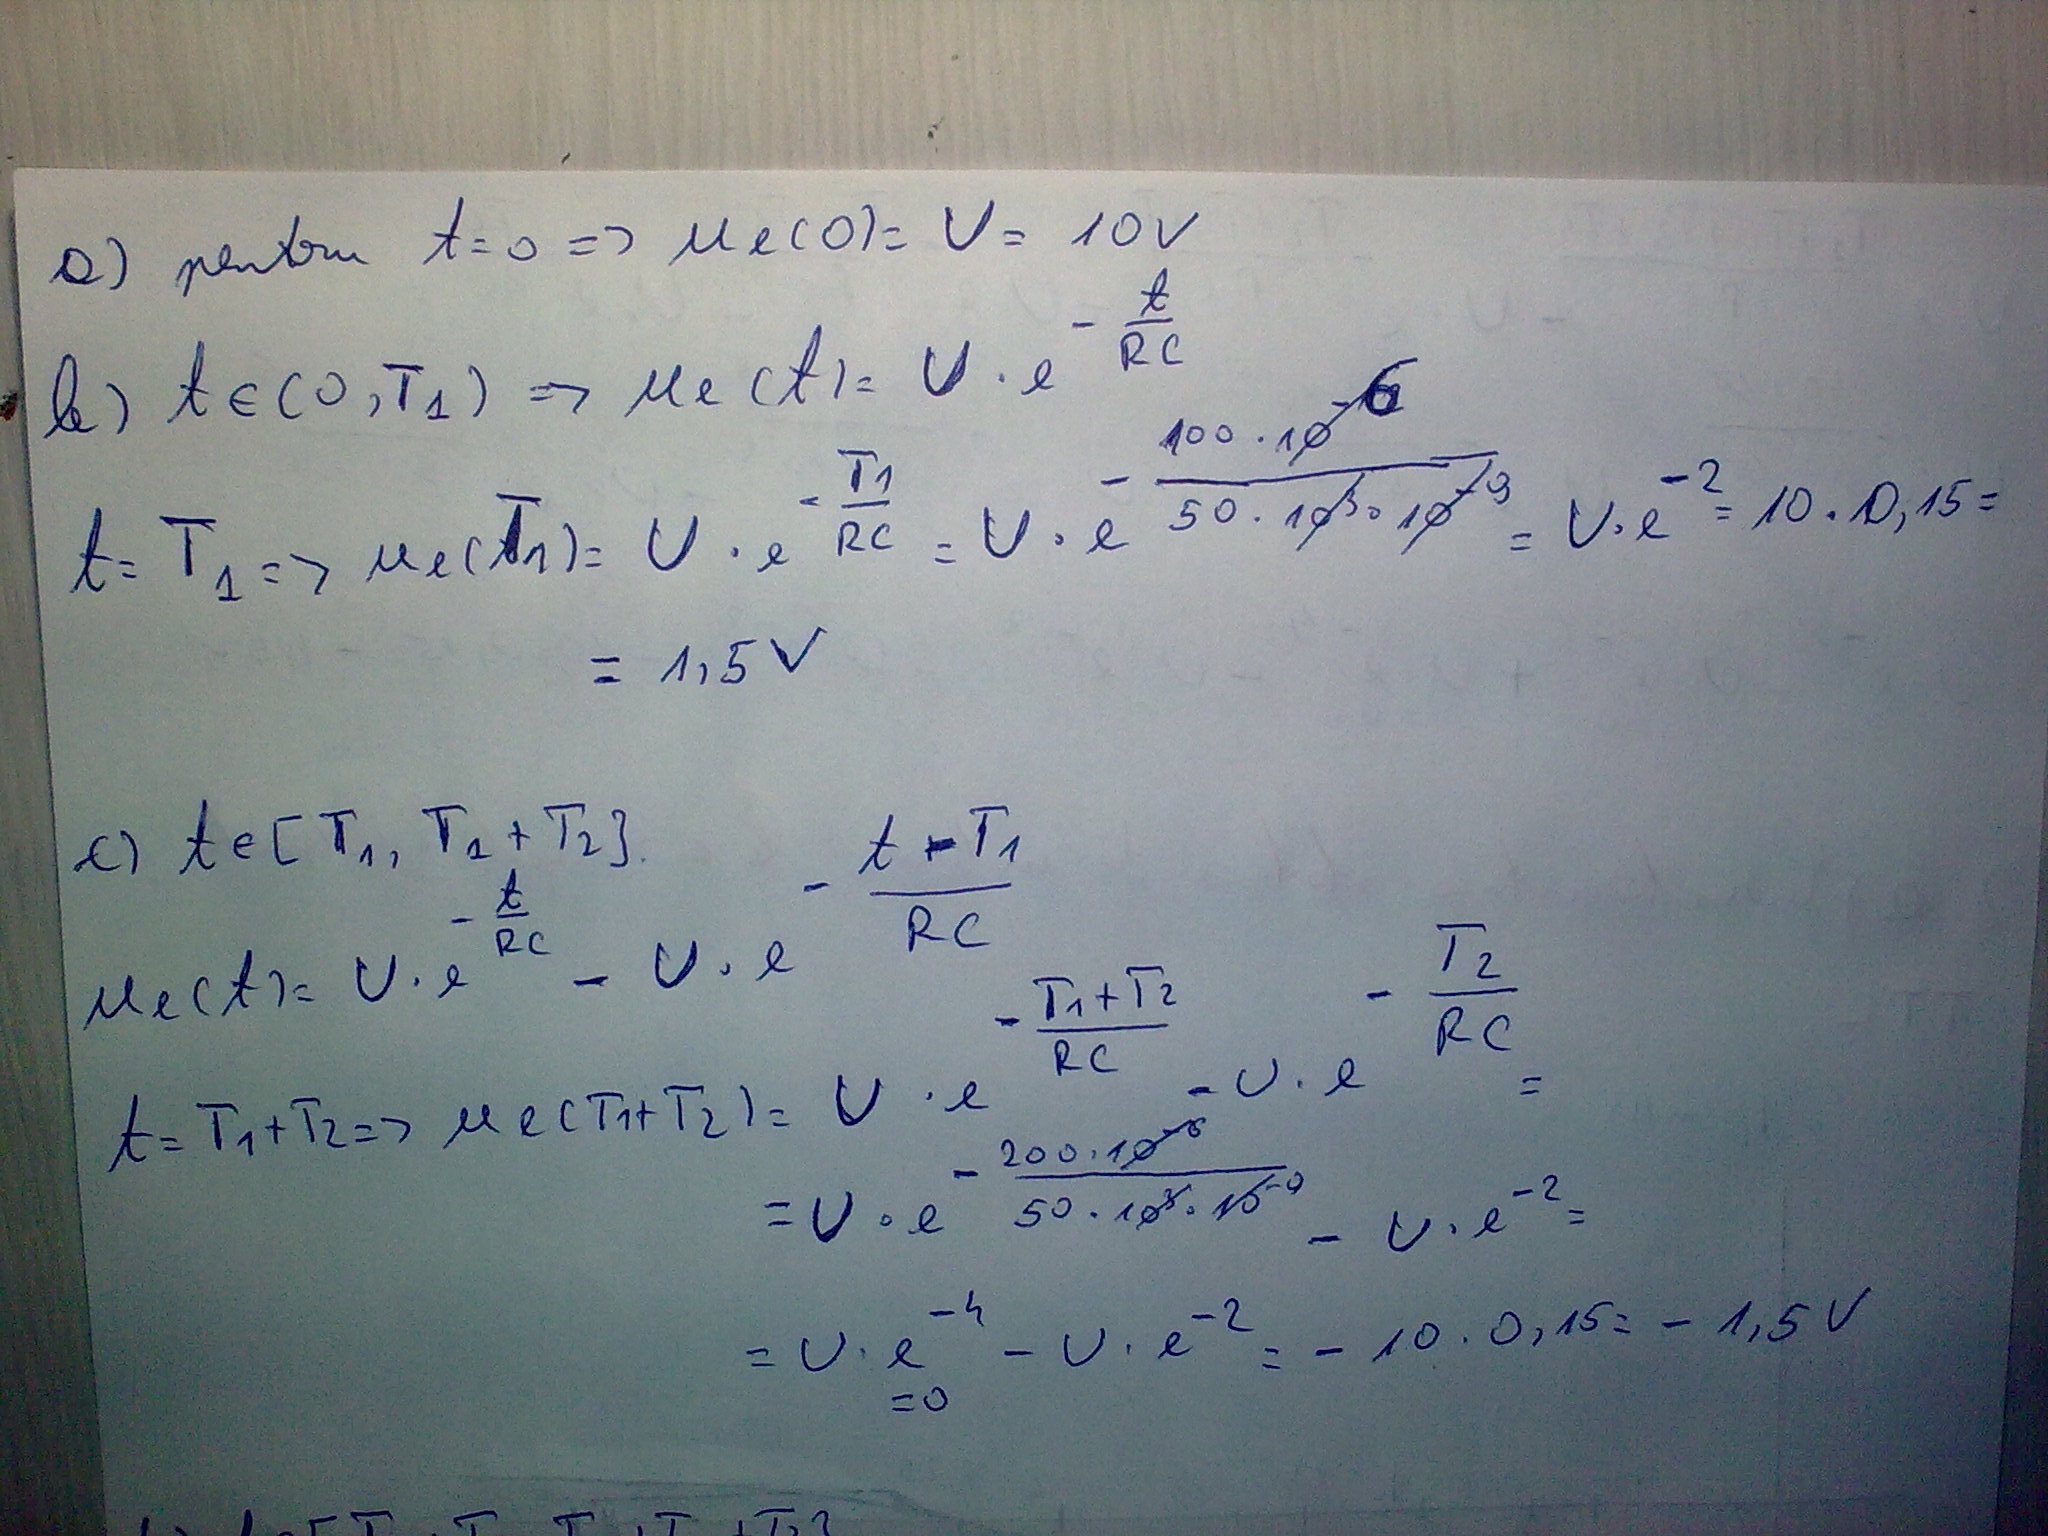 a) pentru t=0 => ue(0)= U= 10V
b) t∈(0,T1) => ue(t)= U·e^(-t/RC)
t=T1 => ue(T1)= U·e^(-T1/RC) = U·e^(-(100·10^-6)/(50·10^3·10^-9)) = U·e^-2 = 10·0,15=
= 1,5V
c) t∈[T1, T1+T2].
ue(t)= U·e^(-t/RC) - U·e^(-(t-T1)/RC)
t=T1+T2=> ue(T1+T2)= U·e^(-(T1+T2)/RC) - U·e^(-T2/RC) =
= U·e^(-(200·10^-6)/(50·10^3·10^-9)) - U·e^-2 =
= U·e^-4 - U·e^-2 = - 10·0,15= - 1,5V
=0